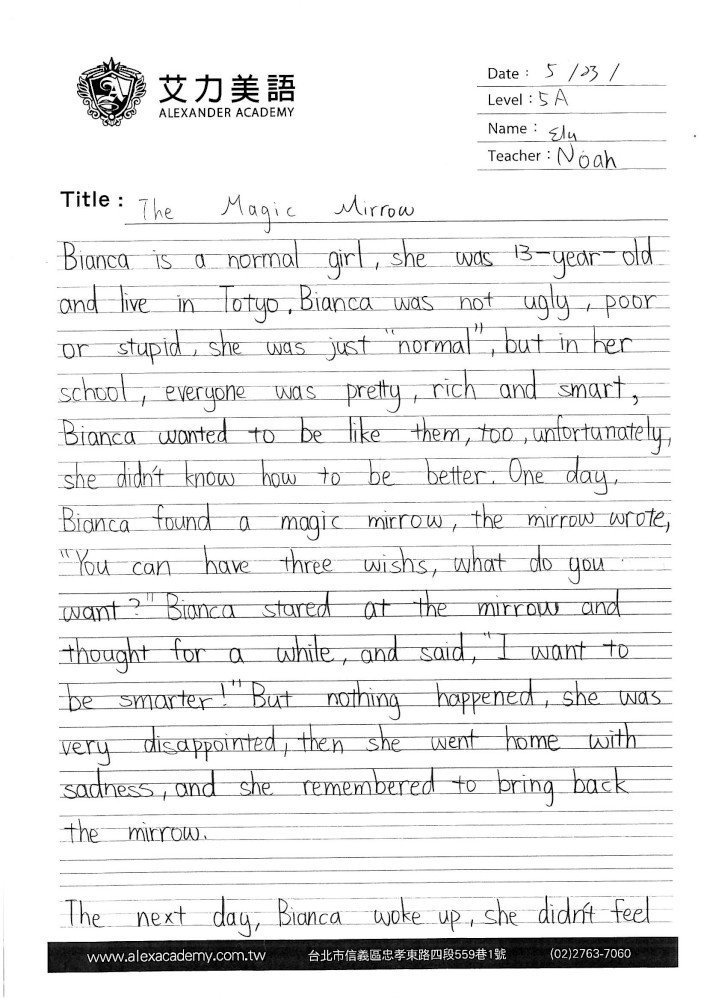 艾力美語
ALEXANDER ACADEMY
Date : 5 /23 /
Level : 5A
Name :
Teacher : Noah
Title : The Magic Mirrow
Bianca is a normal girl, she was 13-year-old
and live in Totyo. Bianca was not ugly, poor
or stupid, she was just "normal", but in her
school, everyone was pretty, rich and smart,
Bianca wanted to be like them, too, unfortunately,
she didn't know how to be better. One day,
Bianca found a magic mirrow, the mirrow wrote,
"You can have three wishs, what do you
want?" Bianca stared at the mirrow and
thought for a while, and said, "I want to
be smarter!" But nothing happened, she was
very disappointed, then she went home with
sadness, and she remembered to bring back
the mirrow.
The next day, Bianca woke up, she didn't feel
www.alexacademy.com.tw 台北市信義區忠孝東路四段559巷1號 (02)2763-7060